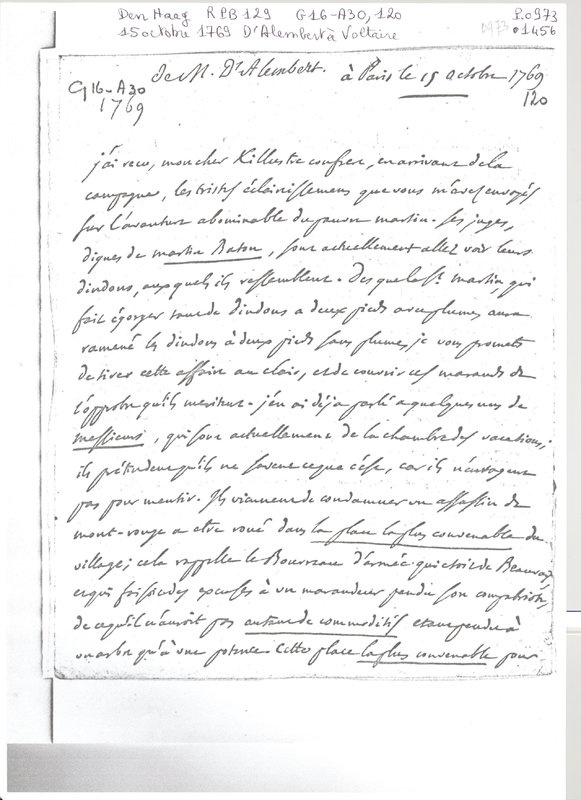 Den Haag RPB 129 G16-A30, 120 P.0973
15 octobre 1769 D'Alembert à Voltaire 0973 01456
de M. D'Alembert. à Paris le 15 octobre 1769
G16-A30
1769
120
j'ai recu, mon cher & illustre confrere, en arrivant de la
campagne, les tristes éclaircissemens que vous m'avés envoyés
sur l'avanture abominable du pauvre martin. Ses juges,
dignes de martin Baton, sont actuellement allez voir leurs
dindons, auxquels ils ressemblent. Des que la St. martin, qui
fait égorger tant de dindons a deux pieds avec plumes aura
ramené les dindons à deux pieds sans plumes, je vous promets
de tirer cette affaire au clair, et de couvrir ces marauds de
l'opprobre qu'ils meritent. j'en ai déja parlé a quelques uns de
messieurs, qui sont actuellement de la chambre des vacations;
ils prétendent qu'ils ne savent ce que c'est, car ils n'enragent
pas pour mentir. Ils viennent de condamner un assassin de
mont-rouge a etre roué dans la place la plus convenable du
village; cela rappelle le Bourreau d'armée qui etoit de Beauvais
et qui faisoit des excuses à un maraudeur pendu son compatriote,
de ce qu'il n'auroit pas autant de commodités etant pendu à
un arbre qu'à une potence. Cette place la plus convenable pour